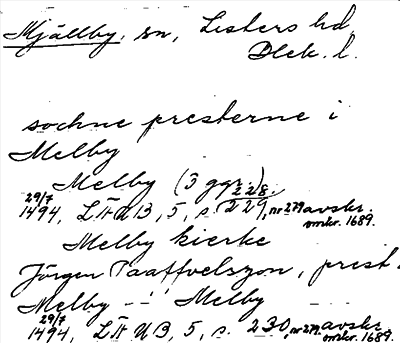 Mjällby, sn, Listers hd,
Blek. l.
sochne presterne i
Melby
Melby (3 ggr)
29/7 228,
1494, LÄUB, 5, s. 229, nr 279 avskr.
omkr. 1689.
Melby kierke
Jörgen Paaffvelszon, prest.
Melby -"- Melby
29/7
1494, LÄUB, 5, s. 230, nr 279 avskr.
omkr. 1689.